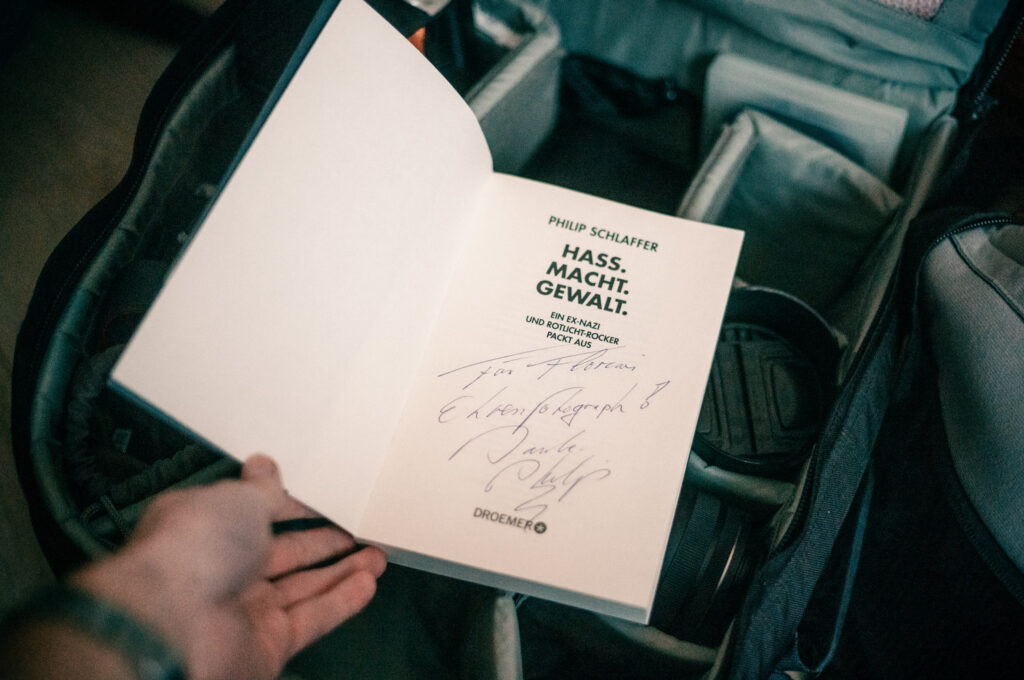 PHILIP SCHLAFFER
HASS.
MACHT.
GEWALT.
EIN EX-NAZI
UND ROTLICHT-ROCKER
PACKT AUS
Für Florian
Ehrenfotograph !
Danke
Philip
DROEMER